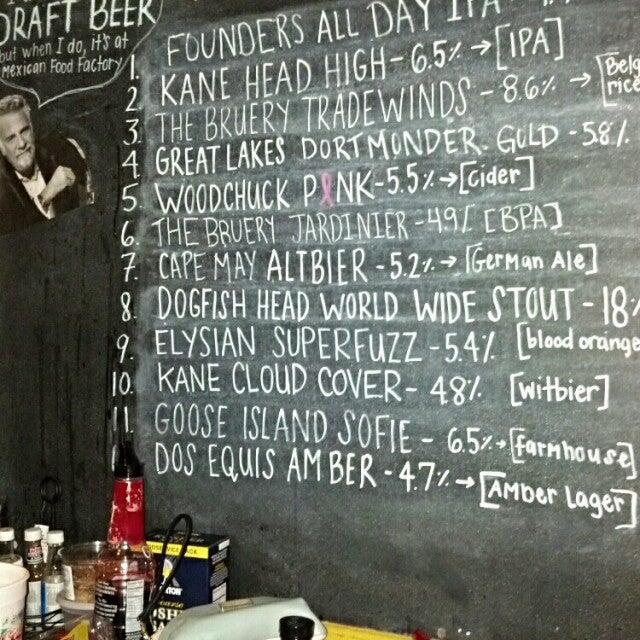 DRAFT BEER
but when I do, it's at
Mexican Food Factory
1. FOUNDERS ALL DAY IPA
2. KANE HEAD HIGH - 6.5% → [IPA]
3. THE BRUERY TRADEWINDS - 8.6% → [Belg
rice
4. GREAT LAKES DORTMUNDER GOLD - 5.8%
5. WOODCHUCK PINK - 5.5% → [Cider]
6. THE BRUERY JARDINIER - 4.9% [BPA]
7. CAPE MAY ALTBIER - 5.2% → [German Ale]
8. DOGFISH HEAD WORLD WIDE STOUT - 18%
9. ELYSIAN SUPERFUZZ - 5.4% [blood orange
10. KANE CLOUD COVER - 4.8% [witbier]
11. GOOSE ISLAND SOFIE - 6.5% → [farmhouse]
DOS EQUIS AMBER - 4.7% → [Amber Lager]